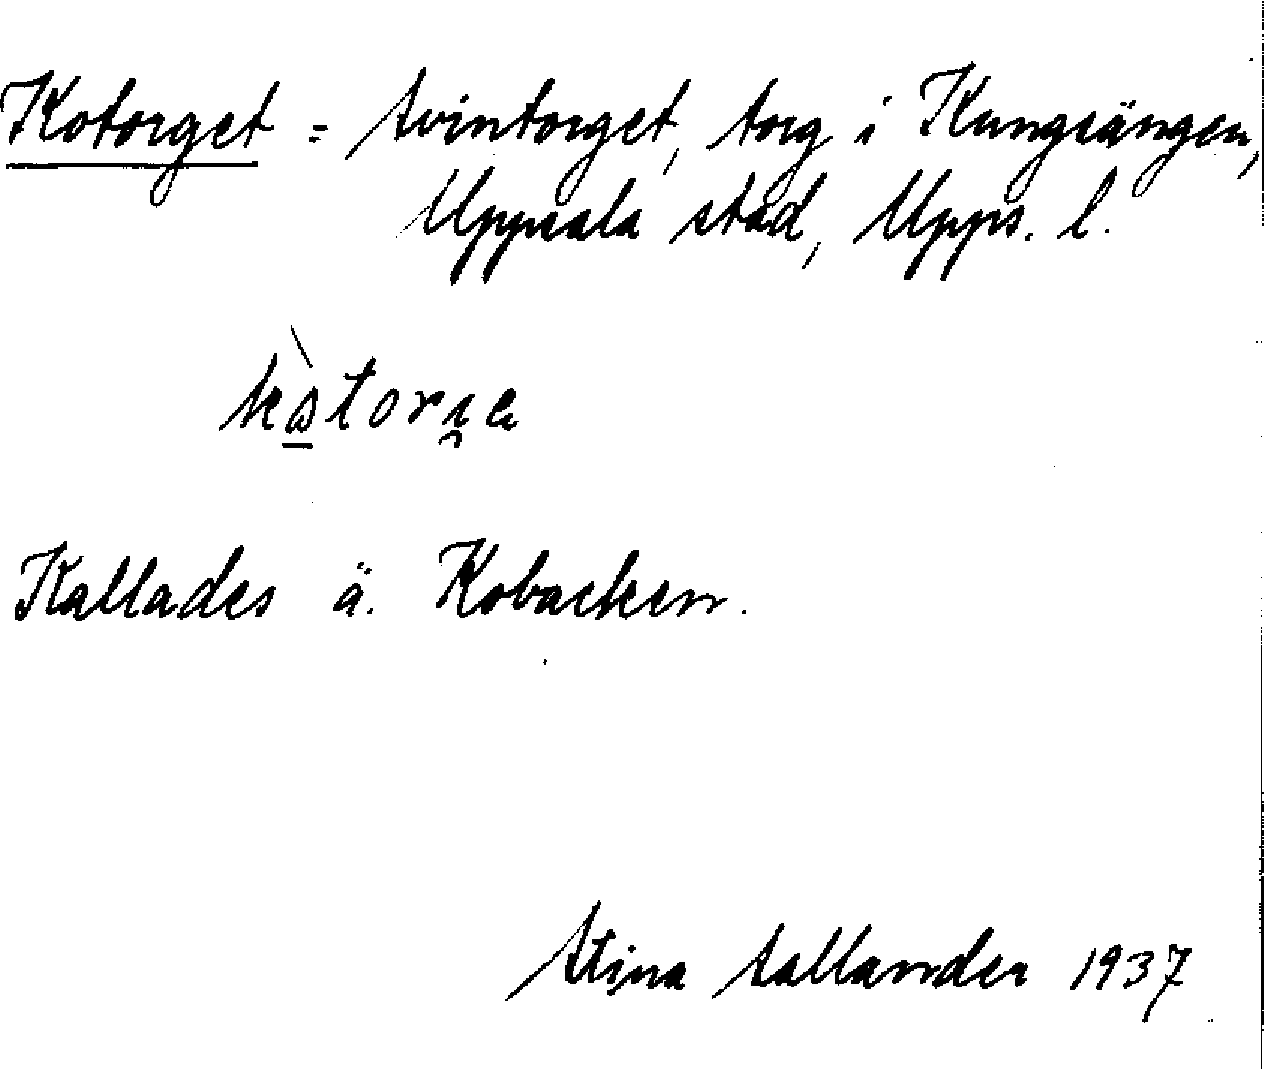 Kotorget = Svintorget, torg i Kungsängen,
Uppsala stad, Upps. l.
Kallades ä. Kobacken.
Stina Sallander 1937